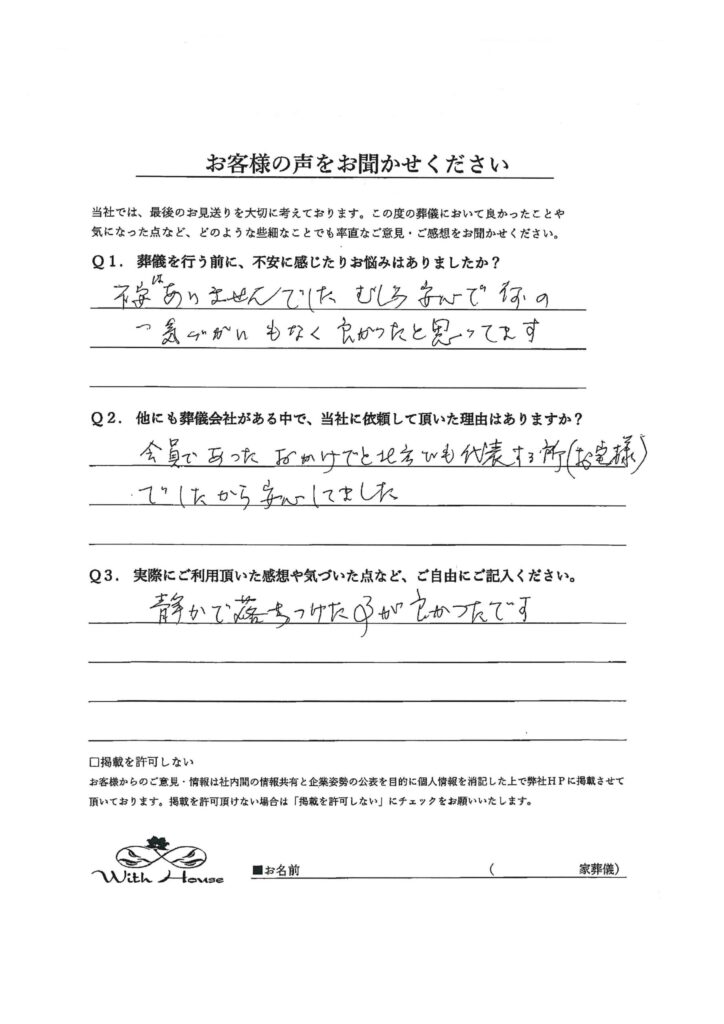 お客様の声をお聞かせください
当社では、最後のお見送りを大切に考えております。この度の葬儀において良かったことや
気になった点など、どのような些細なことでも率直なご意見・ご感想をお聞かせください。
Q1．葬儀を行う前に、不安に感じたりお悩みはありましたか？
不安はありませんでした むしろ安心で何の
一つ気づかいもなく良かったと思ってます
Q2．他にも葬儀会社がある中で、当社に依頼して頂いた理由はありますか？
会員であったおかげでと でも代表する所(お宅様)
でしたから安心してました
Q3．実際にご利用頂いた感想や気づいた点など、ご自由にご記入ください。
静かで落ちつけたのが良かったです
□掲載を許可しない
お客様からのご意見・情報は社内間の情報共有と企業姿勢の公表を目的に個人情報を消記した上で弊社HPに掲載させて
頂いております。掲載を許可頂けない場合は「掲載を許可しない」にチェックをお願いいたします。
With House
■お名前 ( 家葬儀)